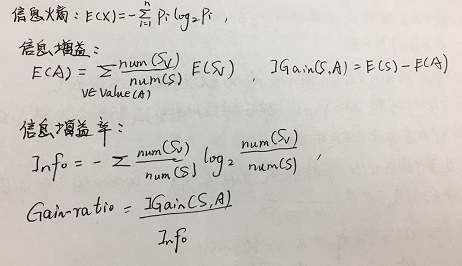 信息熵：E(X)=-∑_{i=1}^{n} Pi log₂Pi ,
信息增益：
E(A) = ∑_{V∈Value(A)} num(Sv)/num(S) E(Sv) , IGain(S,A) = E(S) - E(A)
信息增益率：
Info = - ∑ num(Sv)/num(S) log₂ num(Sv)/num(S) ,
Gain-ratio = IGain(S,A)/Info